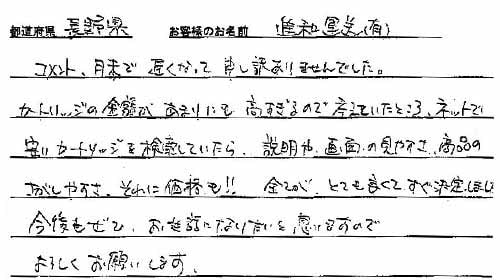 都道府県 長野県 お客様のお名前 進和運送(有)
コメント、月末で遅くなって申し訳ありませんでした。
カートリッジの金額があまりにも高すぎるので考えていたところ、ネットで
安いカートリッジを検索していたら、説明や画面の見やすさ、商品の
さがしやすさ、それに価格も!! 全てが、とても良くて、すぐ決定しました
今後もぜひ、お世話になりたいと思いますので
よろしくお願いします。